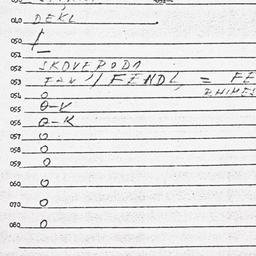 040 DEKL
050
051
052 SKOVERODA
053 / FENDL = FE
054 O
055 O-K
056 O-K
057 O
058 O
059 O
060 O
070 O
080 O